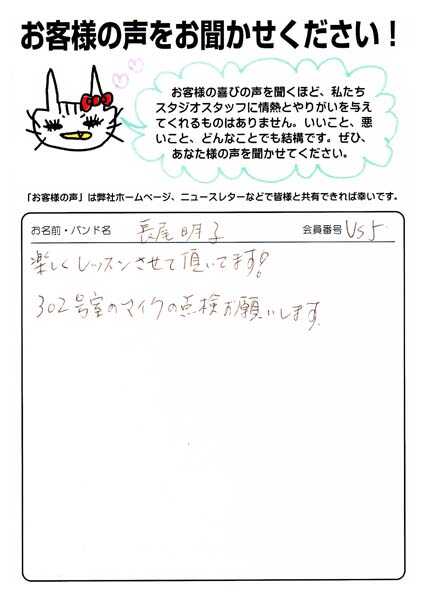 お客様の声をお聞かせください！
お客様の喜びの声を聞くほど、私たち
スタジオスタッフに情熱とやりがいを与え
てくれるものはありません。いいこと、悪
いこと、どんなことでも結構です。ぜひ、
あなた様の声を聞かせてください。
「お客様の声」は弊社ホームページ、ニュースレターなどで皆様と共有できれば幸いです。
お名前・バンド名 長尾明子 会員番号 Vs5
楽しくレッスンさせて頂いてます!
302号室のマイクの点検お願いします